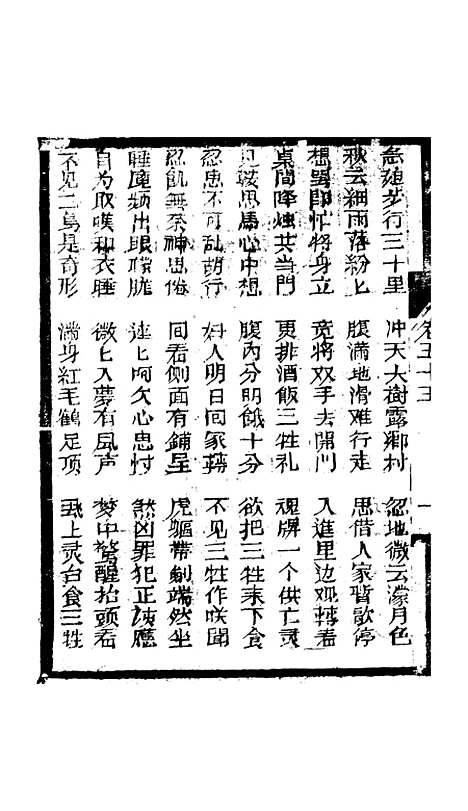 急随步行三十里 冲天大樹露鄉村 忽地微云濛月色
秋云細雨落紛匕 腹满地滑难行走 思借人家暫歇停
想罢即忙将身立 竟将双手去開门 入進里边观轉看
桌間降烛共当門 更排酒飯三牲礼 魂牌一个供亡灵
見該思馬心中想 腹内分明餓十分 欲把三牲来下食
忍思不可乱胡行 妇人明日囬家轉 不见三牲作咲聞
忍飢無奈神思倦 囬看侧面有鋪呈 虎軀帶剣端然坐
睡魔频出眼朦胧 连上呵欠心忠忖 煞凶罪犯正該應
自为取嘆和衣睡 微匕入夢有風声 梦中驚醒抬頭看
不见二鳥是奇形 满身紅毛鶴足顶 飛上灵台食三牲
卷五十五
一